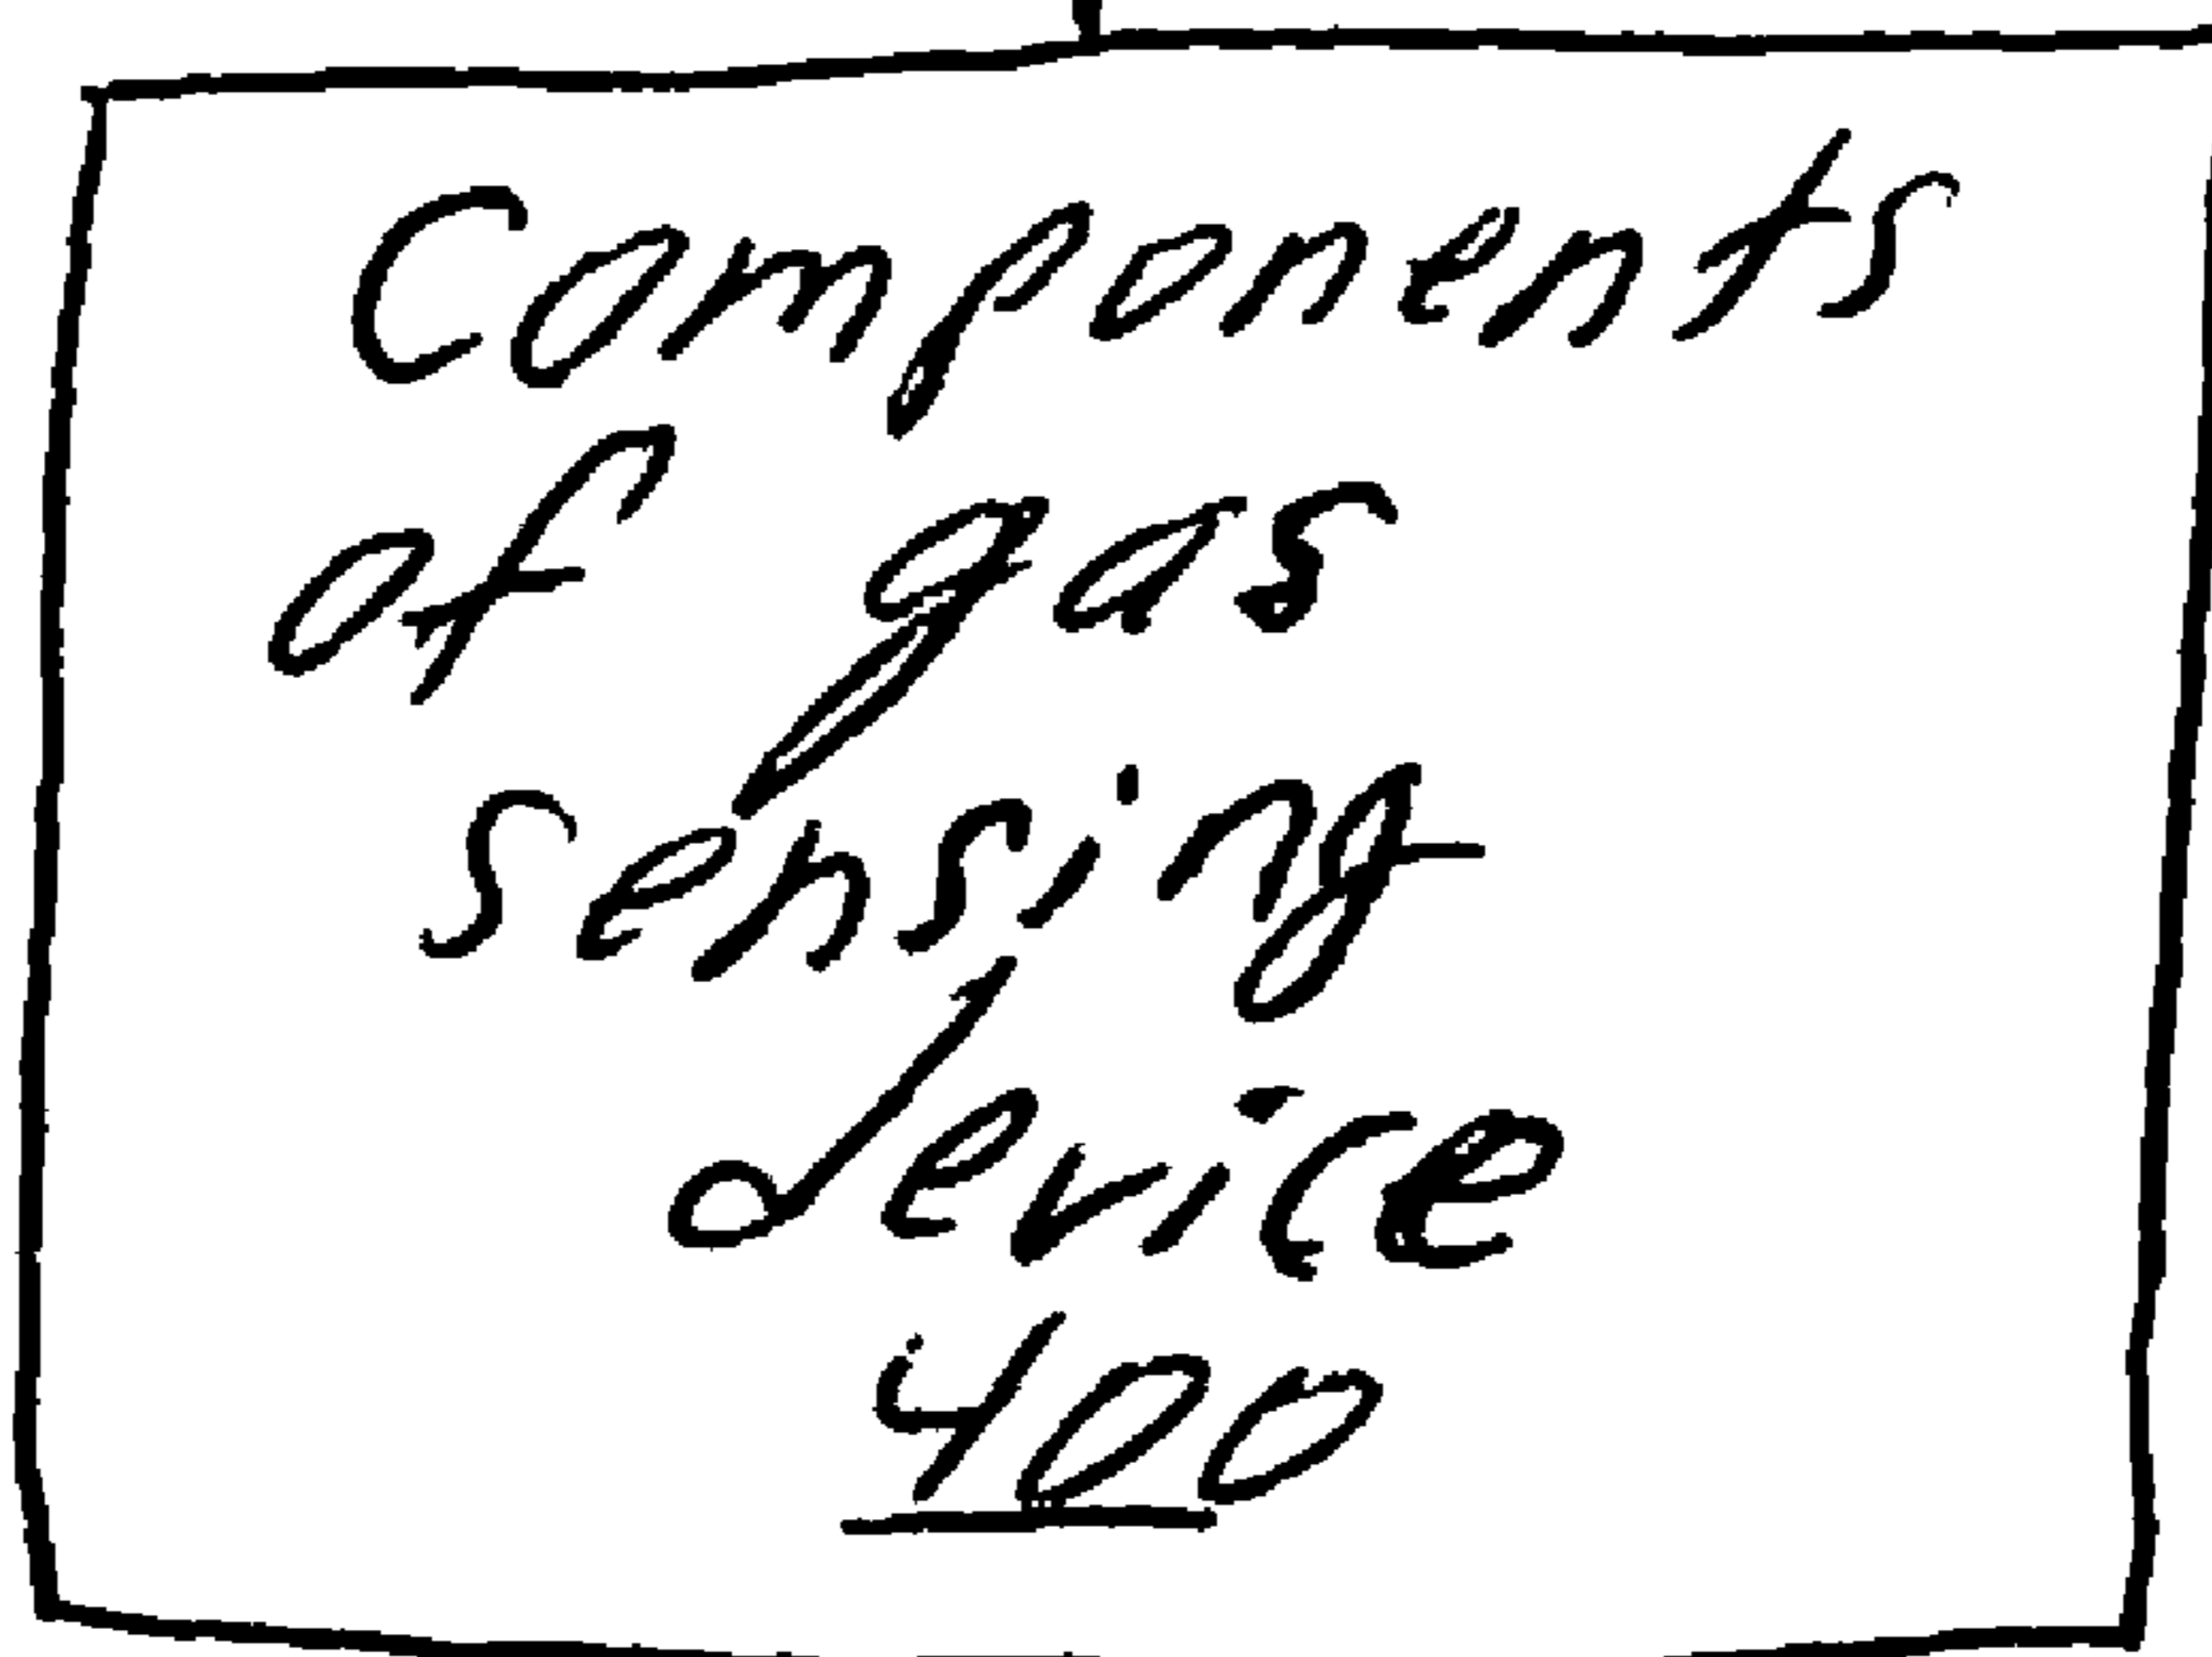 Components
of gas
sensing
device
400